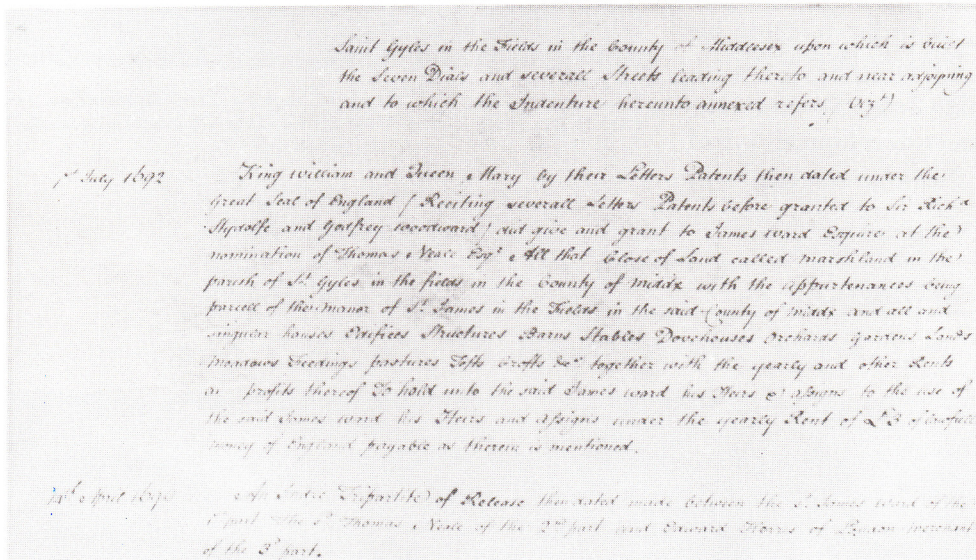 Saint Gyles in the Fields in the County of Middlesex upon which is built
the Seven Dials and severall Streets leading thereto and near adjoining
and to which the Indenture hereunto annexed refers (vizt)
1st July 1692 King William and Queen Mary by their Letters Patents then dated under the
Great Seal of England (Reciting severall Letters Patents before granted to Sir Richd
Stydolfe and Godfrey Woodward) did give and grant to James Ward Esquire at the
nomination of Thomas Neale Esqr All that Close of Land called marshland in the
parish of St Gyles in the fields in the County of Middx with the appurtenances being
parcell of the manor of St James in the Fields in the said County of Middx and all and
singular houses Edifices Structures Barns Stables Dovehouses Orchards Gardens Lands
Meadows Feedings pastures Tofts Crofts &ca together with the yearly and other Rents
profits thereof To hold unto the said James Ward his Heirs & assigns to the use of
the said James ward his Heirs and assigns under the yearly Rent of £3 of lawfull
money of England payable as therein is mentioned.
April An Indre Tripartite of Release then dated made between the sd James Ward of the
1st part The sd Thomas Neale of the 2nd part and Edward Herris of London merchant
of the 3d part.